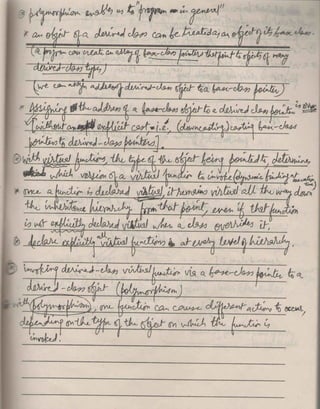 polymorphism enables us to "program in general"
* an object of a derived class can be treated as an object of its base class.
(a program can create an array of base-class pointers that point to objects of many
derived-class types)
(we can assign address of derived-class object to a base-class pointer)
* Assigning the address of a base-class object to a derived class pointer is error
(without an explicit cast. i.e. (downcasting) casting base-class
pointers to derived-class pointers).
with virtual functions, the type of the object being pointed to, determine
which version of a virtual function to invoke (dynamic binding
* once a function is declared virtual, it remains virtual all the way down
the inheritance hierarchy from that point, even if that function
is not explicitly declared virtual when a class overrides it.
declare explicitly all virtual functions at every level of hierarchy.
invoking derived-class virtual function via a base-class pointer to a
derived-class object (polymorphism)
with (polymorphism), one function can cause different actions to occur,
depending on the type of the object on which the function is
invoked.